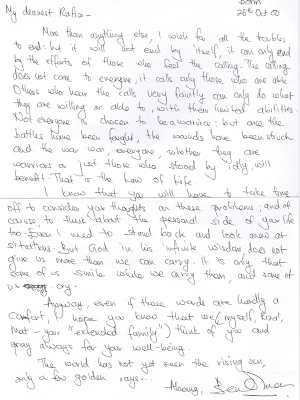 Bonn
26th Oct 00
My dearest Rafizi -
More than anything else, I wish for all the troubles
to end: but it will not end by itself, it can only end
by the efforts of those who feel the calling. The calling
does not come to everyone, it calls only those who are able.
Others who hear the calls very faintly can only do what
they are willing or able to, with their limited abilities.
Not everyone is chosen to be a warrior; but once the
battles have been fought, the wounds have been struck
and the war won, everyone, whether they are
warriors or just those who stood by idly, will
benefit. That is the law of life.
I know that you will have to take time
off to consider your thoughts on these problems; and of
course to think about the personal side of your life
too. Even I need to stand back and look anew at
situations. But God in his infinite wisdom does not
give us more than we can carry. It is only that
some of us smile while we carry them, and some of
us cry.
Anyway, even if these words are hardly a
comfort, I hope you know that we (myself,
Mat - your "extended family") think of you and
pray always for your well-being.
The world has not yet seen the rising sun,
only a few golden rays...
Abang,